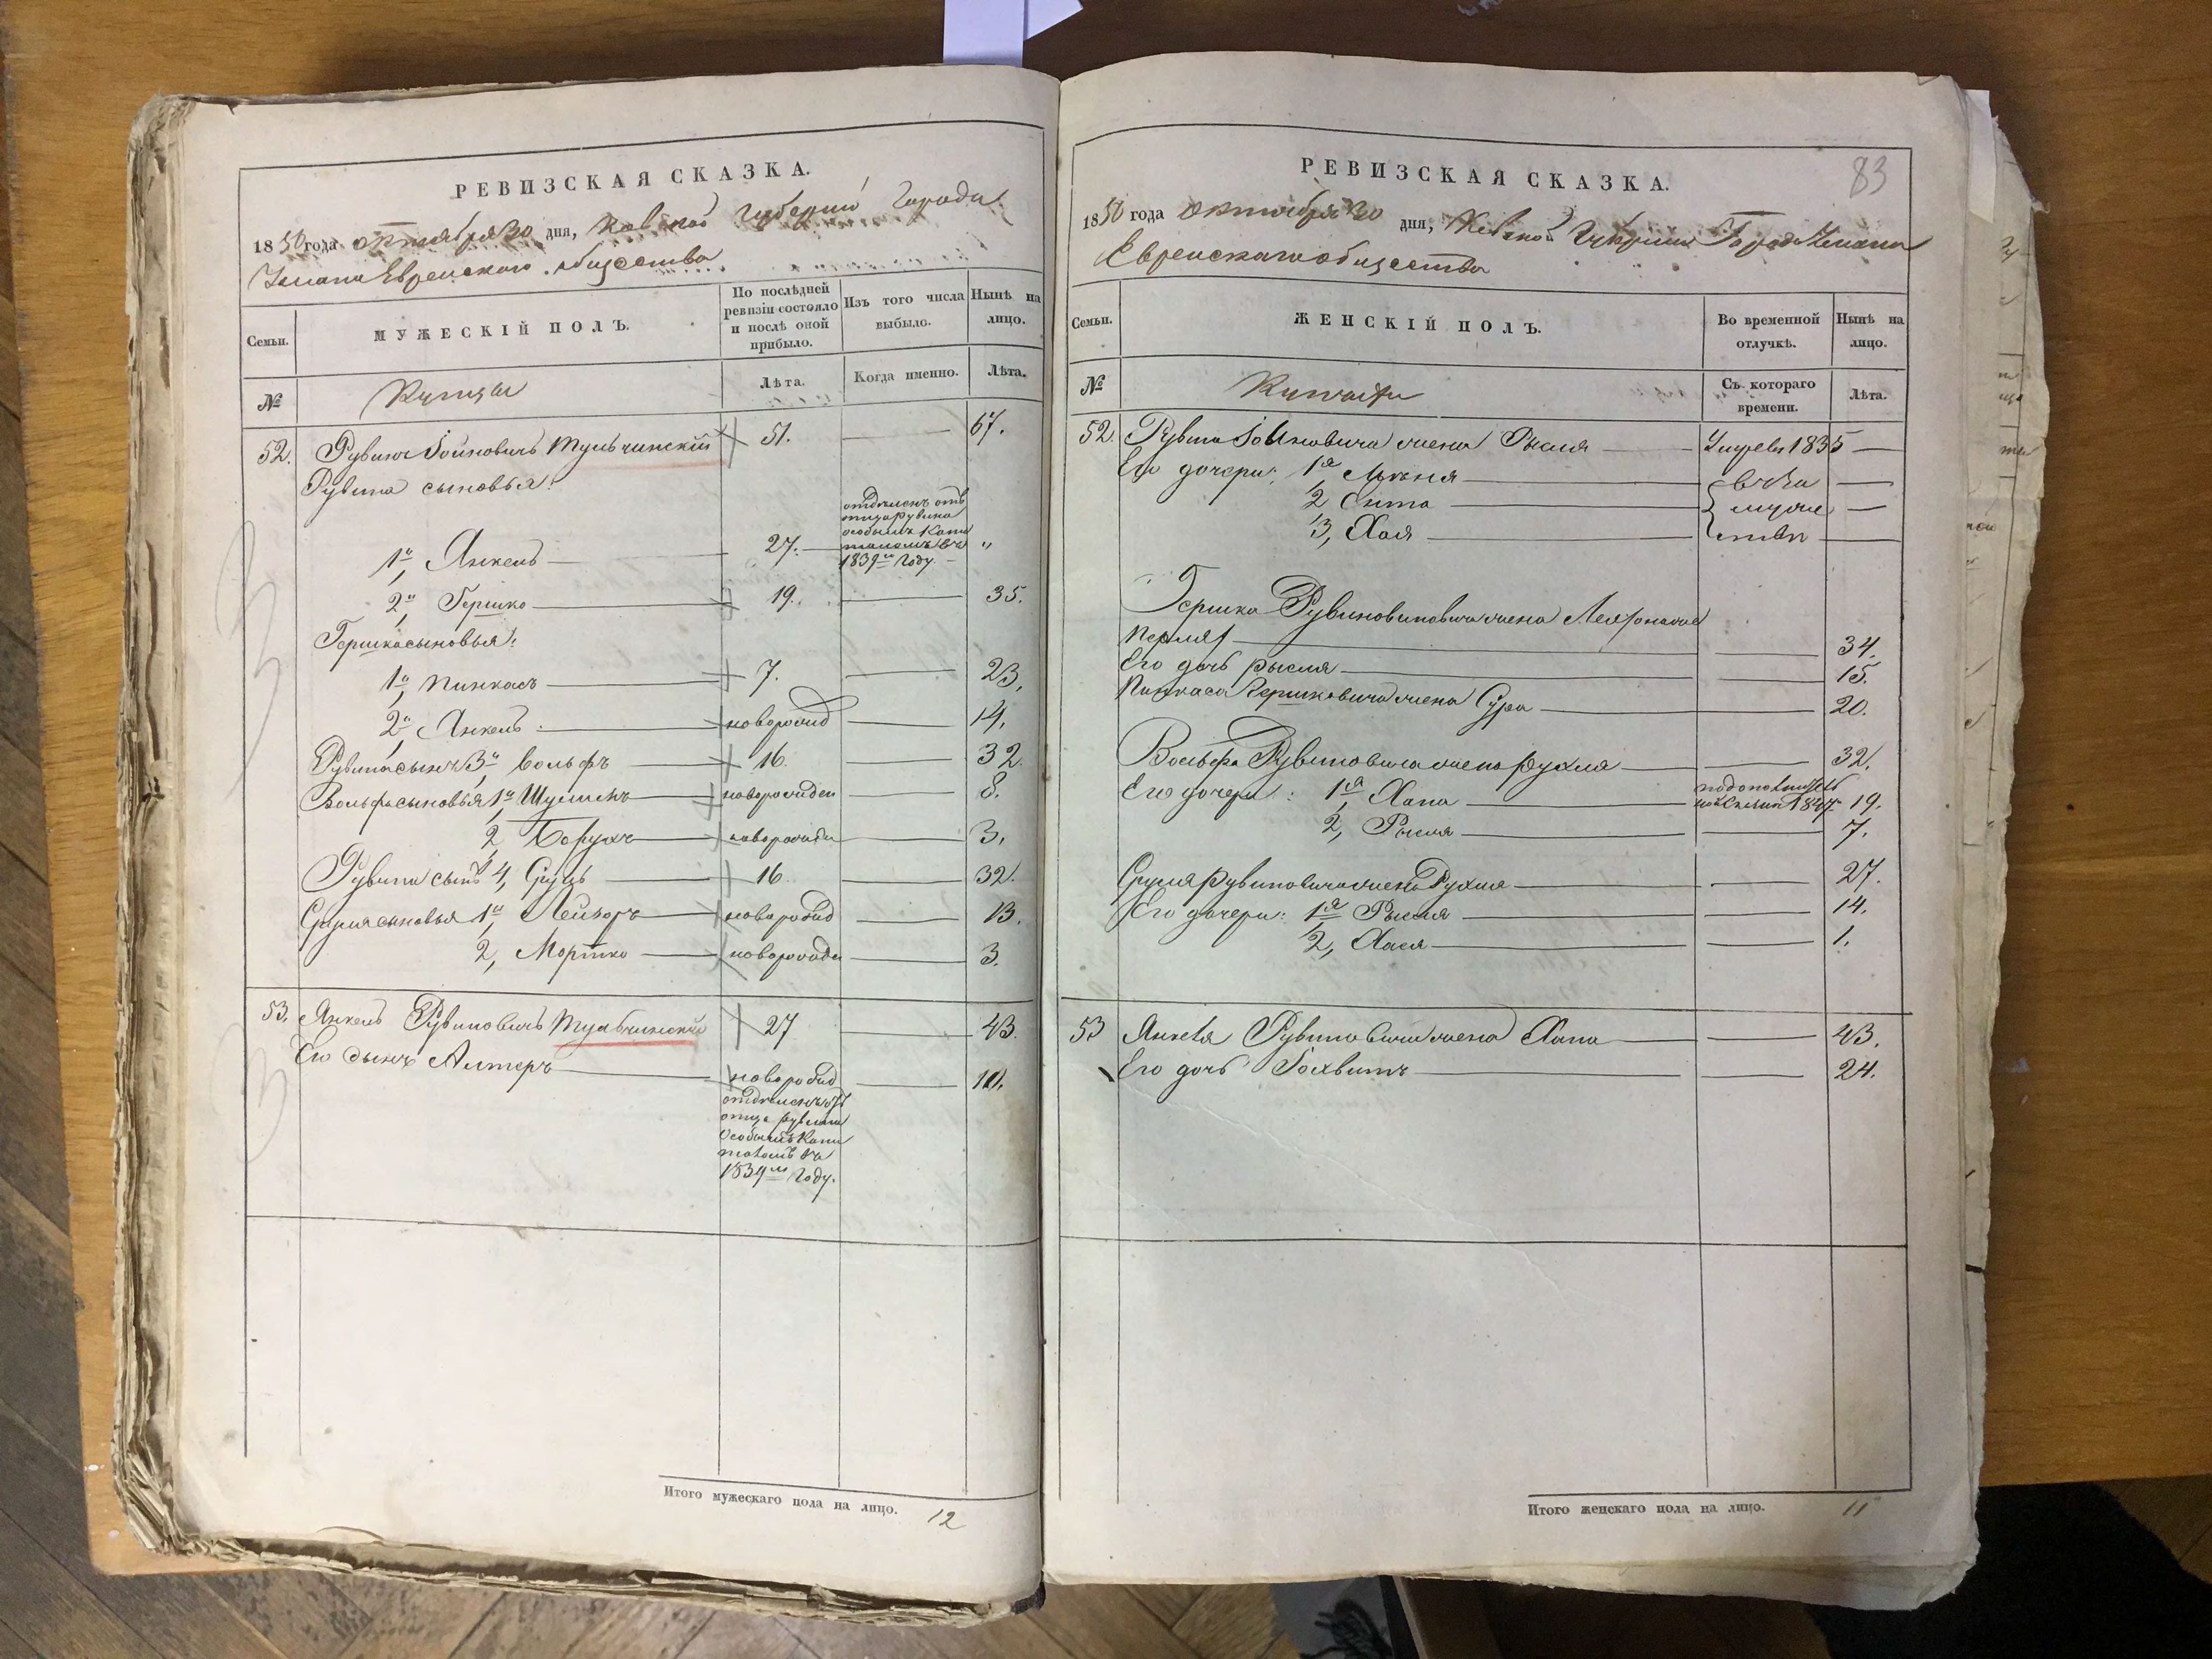 РЕВИЗСКАЯ СКАЗКА.
1850 года октября 30 дня, Киевской губернии Города
Уманя Еврейскаго общества
Семьи.
МУЖЕСКІЙ ПОЛЪ.
По послѣдней ревизіи состояло и послѣ оной прибыло.
Изъ того числа выбыло.
Нынѣ на лицо.
№
Купцы
Лѣта.
Когда именно.
Лѣта.
52. Рувинъ Іойновичъ Тульчинскій 51. 67.
Рувина сыновья:
1й Янкель 27. отделенъ отъ отца рувина особымъ капиталомъ въ 1839м году. "
2й Гершко 19. 35.
Гершка сыновья:
1й Пинкасъ 7. 23.
2й Янкель новорожд 14.
Рувина сынъ 3й Вольфъ 16. 32.
Вольфа сыновья 1й Шулимъ новорожден 8.
2, Борухъ новорожден 3.
Рувина сынъ 4, Сруль 16. 32.
Сруля сыновья 1й Лейзоръ новорожд 13.
2, Мортко новорожден 3.
53. Янкель Рувиновичъ Тульчинскій 27 43.
Его сынъ Алтеръ новорожд 10.
отделенъ отъ
отца рувина
особымъ капи
таломъ въ
1839м году.
Итого мужескаго пола на лицо. 12
83
РЕВИЗСКАЯ СКАЗКА.
1850 года октября 30 дня, Киевской Губернии Города Уманя
Еврейскаго общества
Семьи.
ЖЕНСКІЙ ПОЛЪ.
Во временной отлучкѣ.
Нынѣ на лицо.
№
Съ котораго времени.
Лѣта.
52. Рувина Іойновича жена Рысля Умре въ 1835
Его дочери: 1я
2 Ента
3, Хая
Гершка Рувиновича жена
Перля 34.
Его дочь рысля 15.
Пинкаса Гершковича жена Сура 20.
Вольфа Рувиновича жена рухля 32.
Его дочери: 1я Хана 19.
2, Рысля 7.
Сруля рувиновича жена Рухля 27.
Его дочери: 1я Рысля 14.
2, Хася 1.
53 Янкеля Рувиновича жена Хана 43.
Его дочь Іохвитъ 24.
Итого женскаго пола на лицо. 11